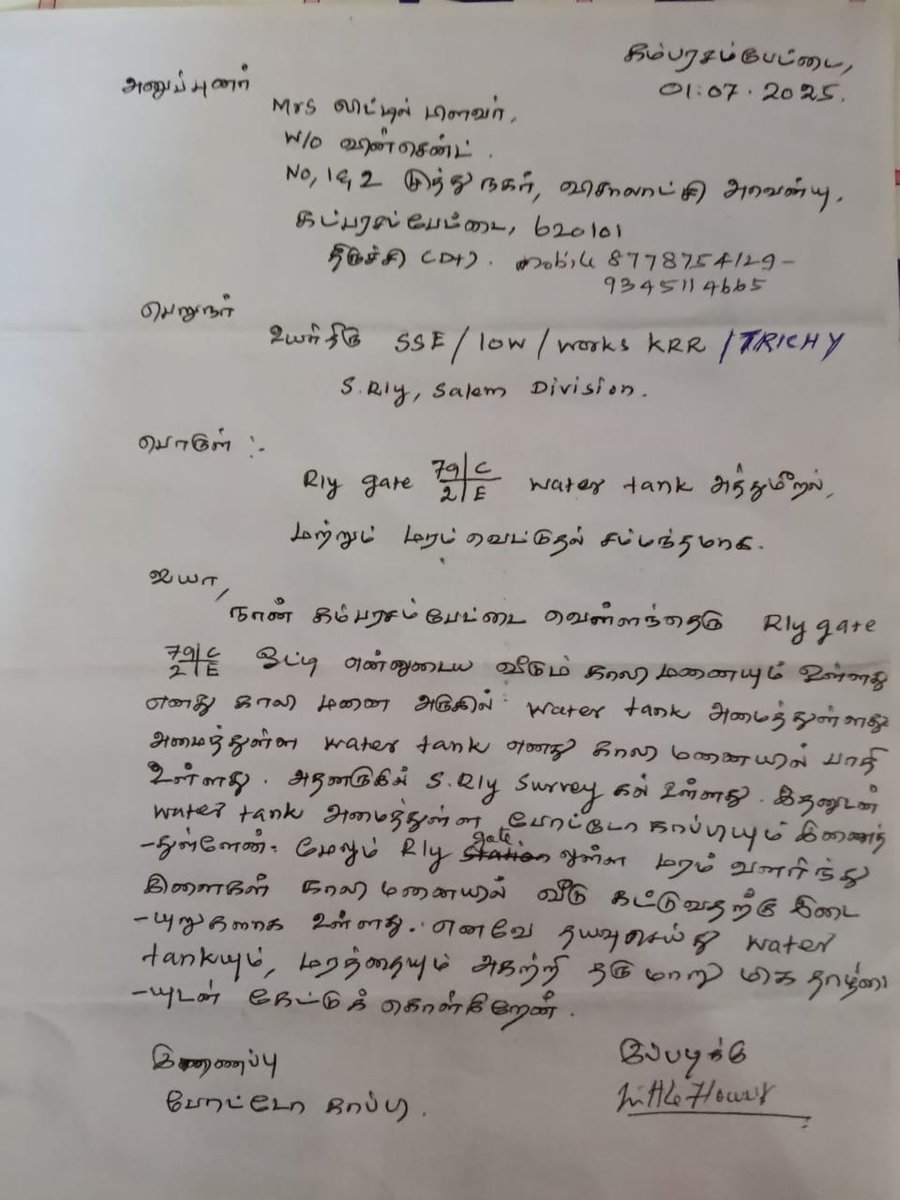 கம்பரசம்பேட்டை,
01.07.2025.
அனுப்புனர்
Mrs லிட்டில் பிளவர்,
W/O வின்சென்ட்.
No, 1&2 முத்து நகர், விசாலாட்சி அவென்யு,
கப்பரசம்பேட்டை, 620101
திருச்சி (Dt). mobile 8778754129-
9345114665
பெறுநர்
உயர்திரு SSE/IOW/works KRR/TRICHY
S.Rly, Salem Division.
பொருள் :-
Rly gate 79/2 C/E water tank அத்துமீறல்,
மற்றும் மரம் வெட்டுதல் சம்பந்தமாக.
ஐயா,
நான் கம்பரசம்பேட்டை வெள்ளந்தெரு Rly gate
79/2 C/E ஒட்டி என்னுடைய வீடும் காலி மனையும் உள்ளது
எனது காலி மனை அருகில் water tank அமைத்துள்ளது
அமைத்துள்ள water tank எனது காலி மனையில் பாதி
உள்ளது. அதனருகில் S.Rly Survey கல் உள்ளது. இதனுடன்
water tank அமைத்துள்ள போட்டோ காப்பியும் இணைத்
-துள்ளேன். மேலும் Rly gate லுள்ள மரம் வளர்ந்து
கிளைகள் காலி மனையில் வீடு கட்டுவதற்கு இடை
-யுறுகளாக உள்ளது. எனவே தயவுசெய்து water
tankயும், மரத்தையும் அகற்றி தருமாறு மிக தாழ்மை
-யுடன் கேட்டுக் கொள்கிறேன்.
இணைப்பு
போட்டோ காப்பி.
இப்படிக்கு
Little Flower